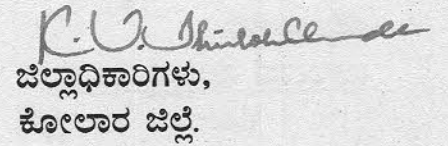 ಜಿಲ್ಲಾಧಿಕಾರಿಗಳು,
ಕೋಲಾರ ಜಿಲ್ಲೆ.